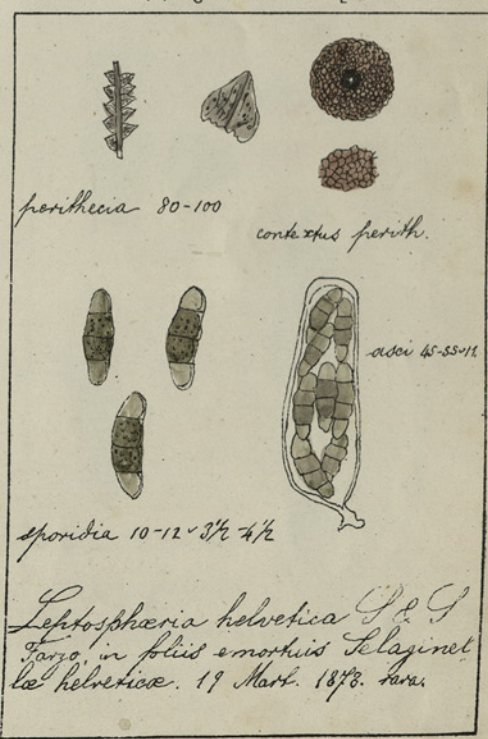 perithecia 80-100
contextus perith.
asci 45-55 v 11
sporidia 10-12 v 3½-4½
Leptosphæria helvetica S & S
in foliis emortuis Selaginel
læ helveticæ. 19 Mart. 1873. rara.